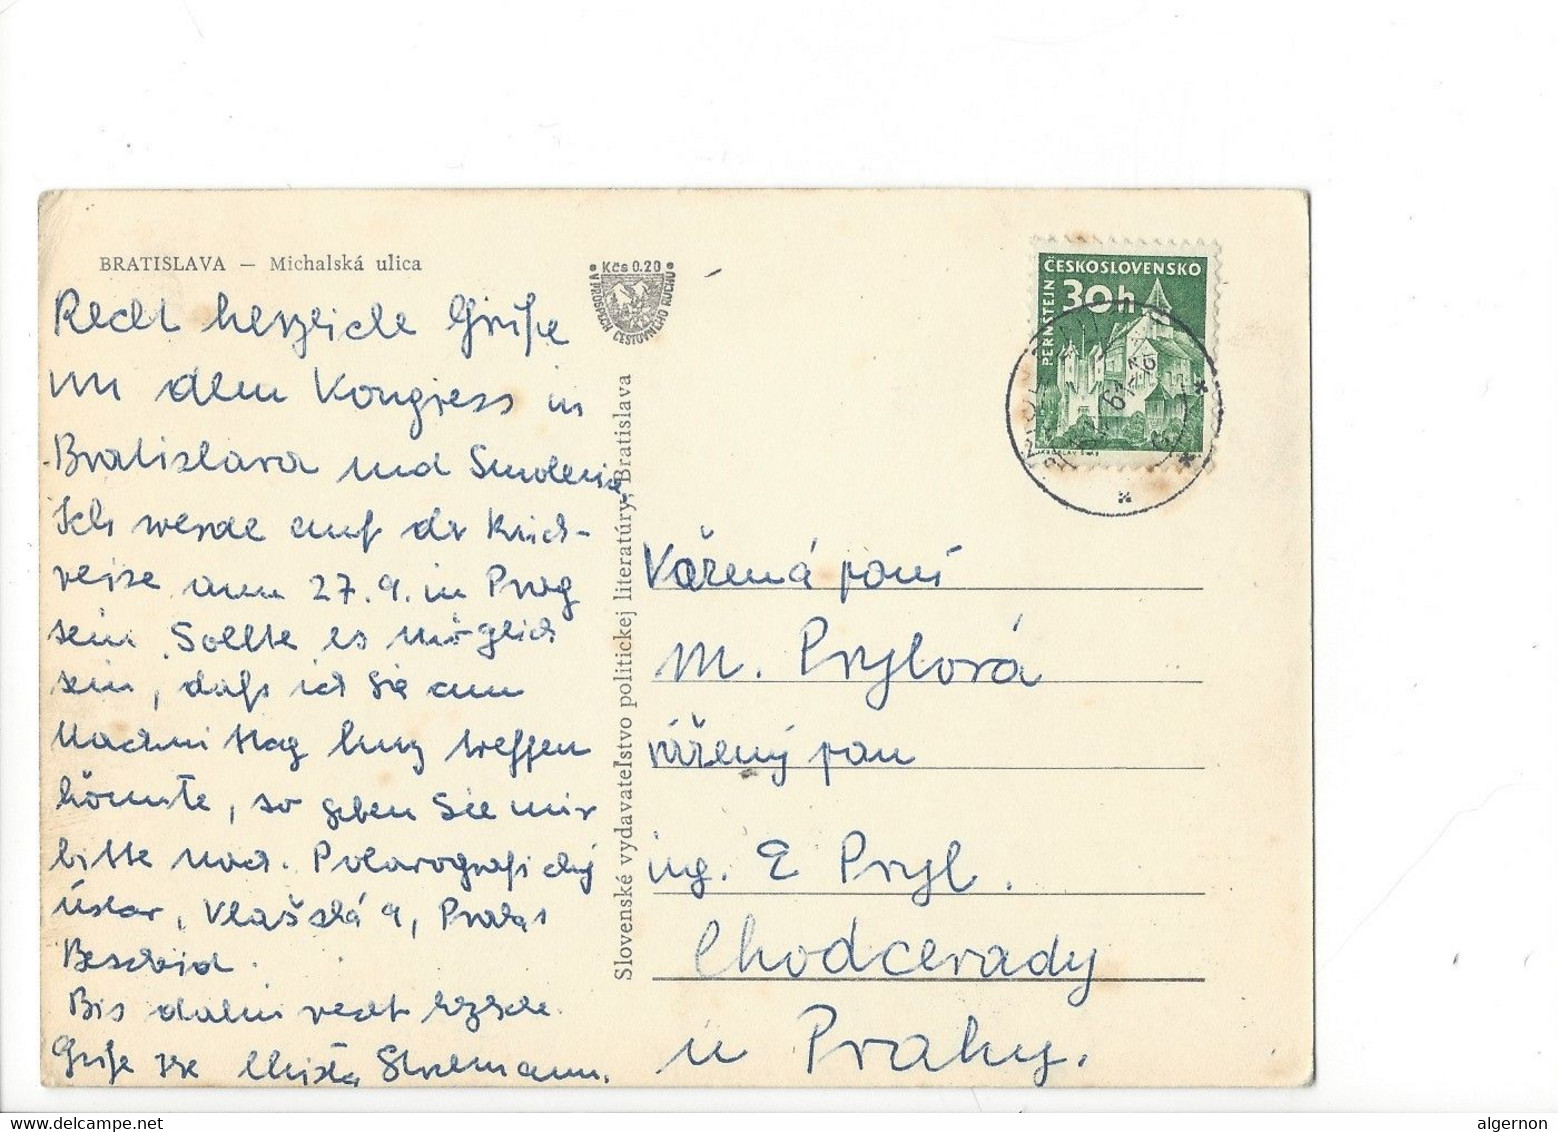 BRATISLAVA — Michalská ulica
Recht herzliche Grüße
von dem Kongress in
Bratislava und Smolenic
Ich werde auf der Rück-
reise am 27. 9. in Prag
sein. Sollte es möglich
sein, daß ich Sie am
Nachmittag kurz treffen
könnte, so geben Sie mir
bitte nach Polarografický
Ústav, Vlašská 9, Praha 1
Bescheid.
Bis dahin recht herzliche
Grüße Ihre Strelmann.
Kčs 0.20
V PROSPECH CESTOVNÉHO RUCHU
Slovenské vydavateľstvo politickej literatúry, Bratislava
ČESKOSLOVENSKO
30h
PERNŠTEJN
61-16
Vážená paní
M. Prylová
vážený pan
ing. E Pryl.
Chodcerady
u Prahy.
algernon